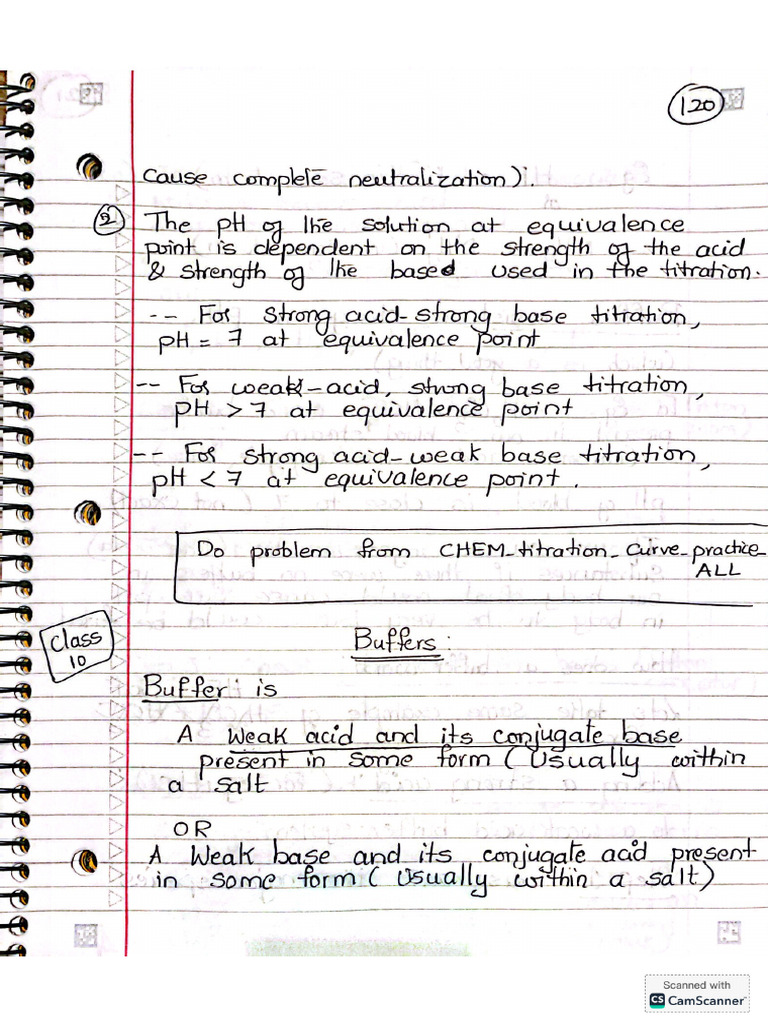 120
cause complete neutralization).
2 The pH of the solution at equivalence
point is dependent on the strength of the acid
& strength of the based used in the titration.
-- For strong acid-strong base titration,
pH = 7 at equivalence point
-- For weak-acid, strong base titration,
pH > 7 at equivalence point
-- For strong acid-weak base titration,
pH < 7 at equivalence point.
Do problem from CHEM_titration_curve_practice_
ALL
Class
10
Buffers:
Buffer: is
A Weak acid and its conjugate base
present in some form (Usually within
a salt
OR
A Weak base and its conjugate acid present
in some form (Usually within a salt)
Scanned with
CS CamScanner